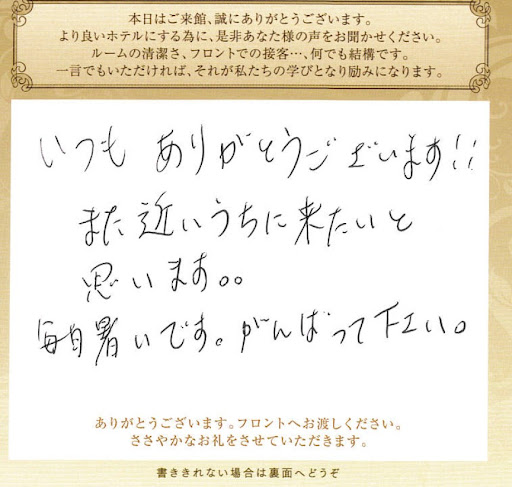 本日はご来館、誠にありがとうございます。
より良いホテルにする為に、是非あなた様の声をお聞かせください。
ルームの清潔さ、フロントでの接客…、何でも結構です。
一言でもいただければ、それが私たちの学びとなり励みになります。
いつも ありがとうございます!!
また近いうちに来たいと
思います。。
毎日暑いです。がんばって下さい。
ありがとうございます。フロントへお渡しください。
ささやかなお礼をさせていただきます。
書ききれない場合は裏面へどうぞ